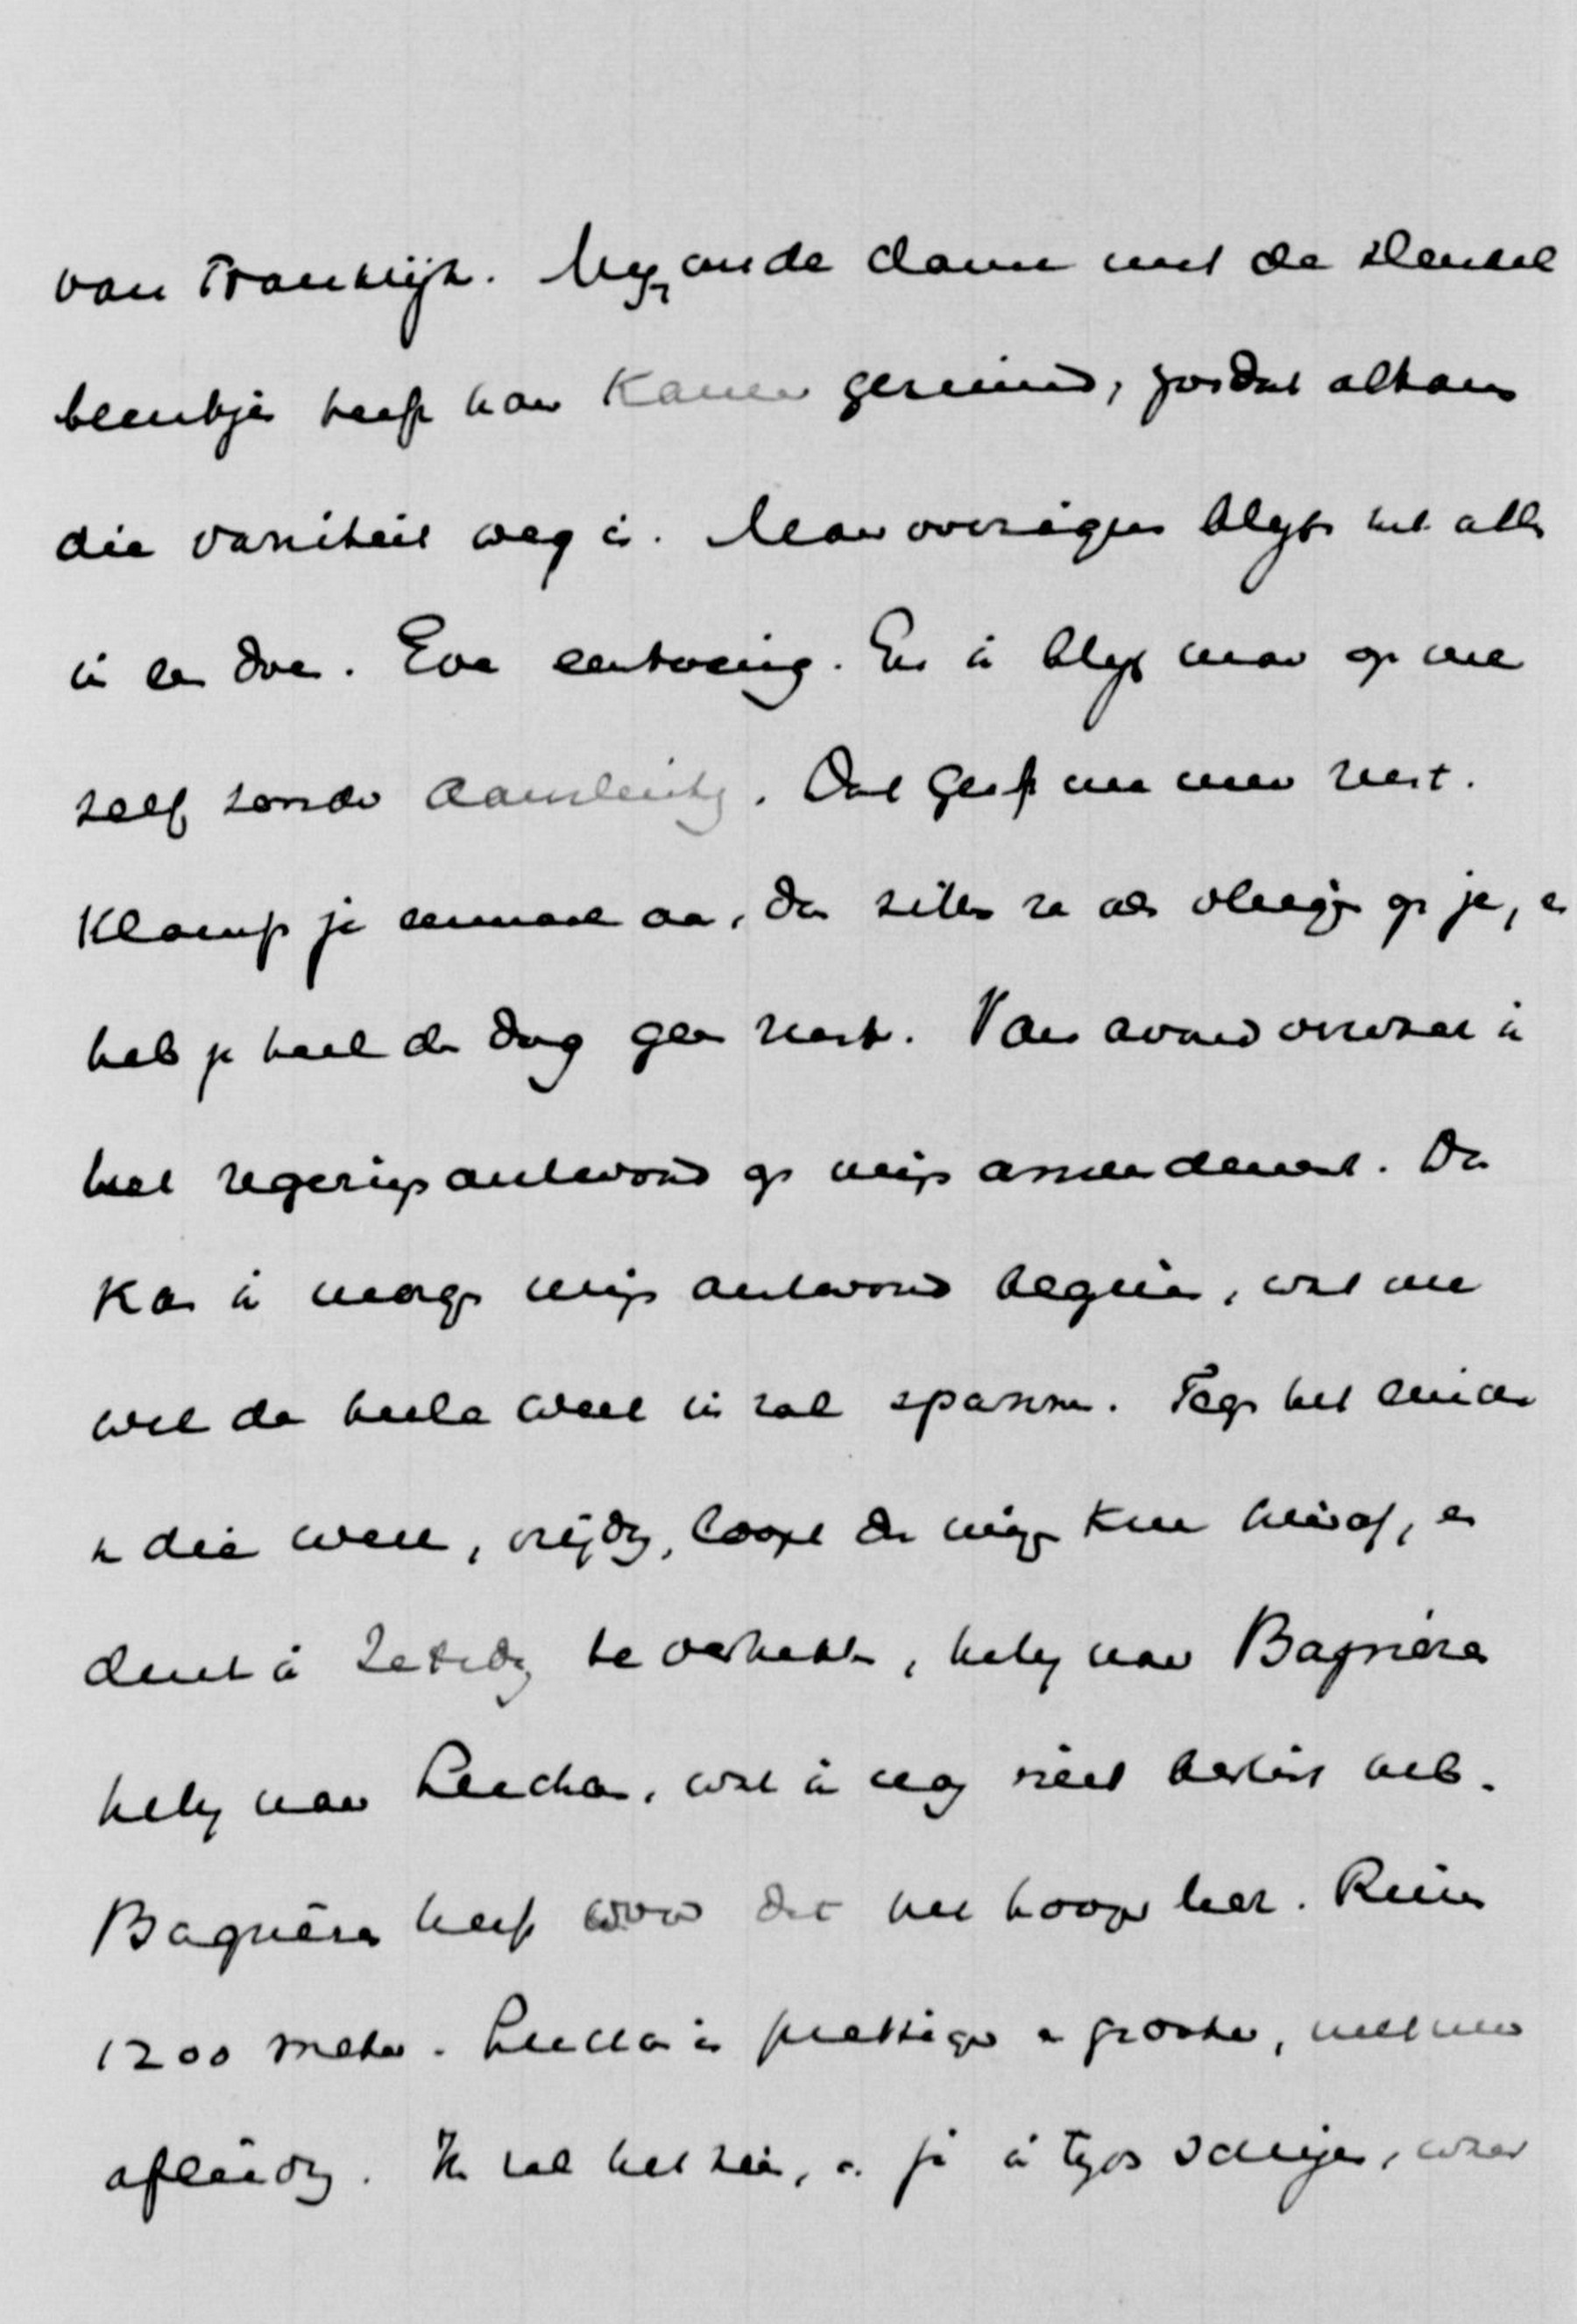 van Frankrijk. Mijn oude dame met de slechte
beentjes heeft haar kamer geruimd, zoodat althans
die variteit weg is. Maar overigens blijft het alles
in en door. Even eentoonig. En ik blijf maar op me
zelf zonder aansluiting. Dat geeft me meer rust.
Klamp je eenmaal aan, dan zitten ze als vliegen op je, en
heb je heel den dag geen rust. Van avond verwacht ik
het regeringsantwoord op mijn amendement. Dan
kan ik morgen mijn antwoord beginnen, wat me
wel de heele week in zal spannen. Tegen het einde
van die week, vrijdag, loopt de mijn kuur hier af, en
denk ik Zaterdag te vertrekken, hetzij naar Bagnères
hetzij naar Luchon, wat ik nog niet beslist heb.
Bagnères heeft voor dat het hooger ligt. Ruim
1200 meter. Luchon is prettiger en grooter, met meer
afleiding. Ik zal het zien, en je ik tijds schrijven, waar